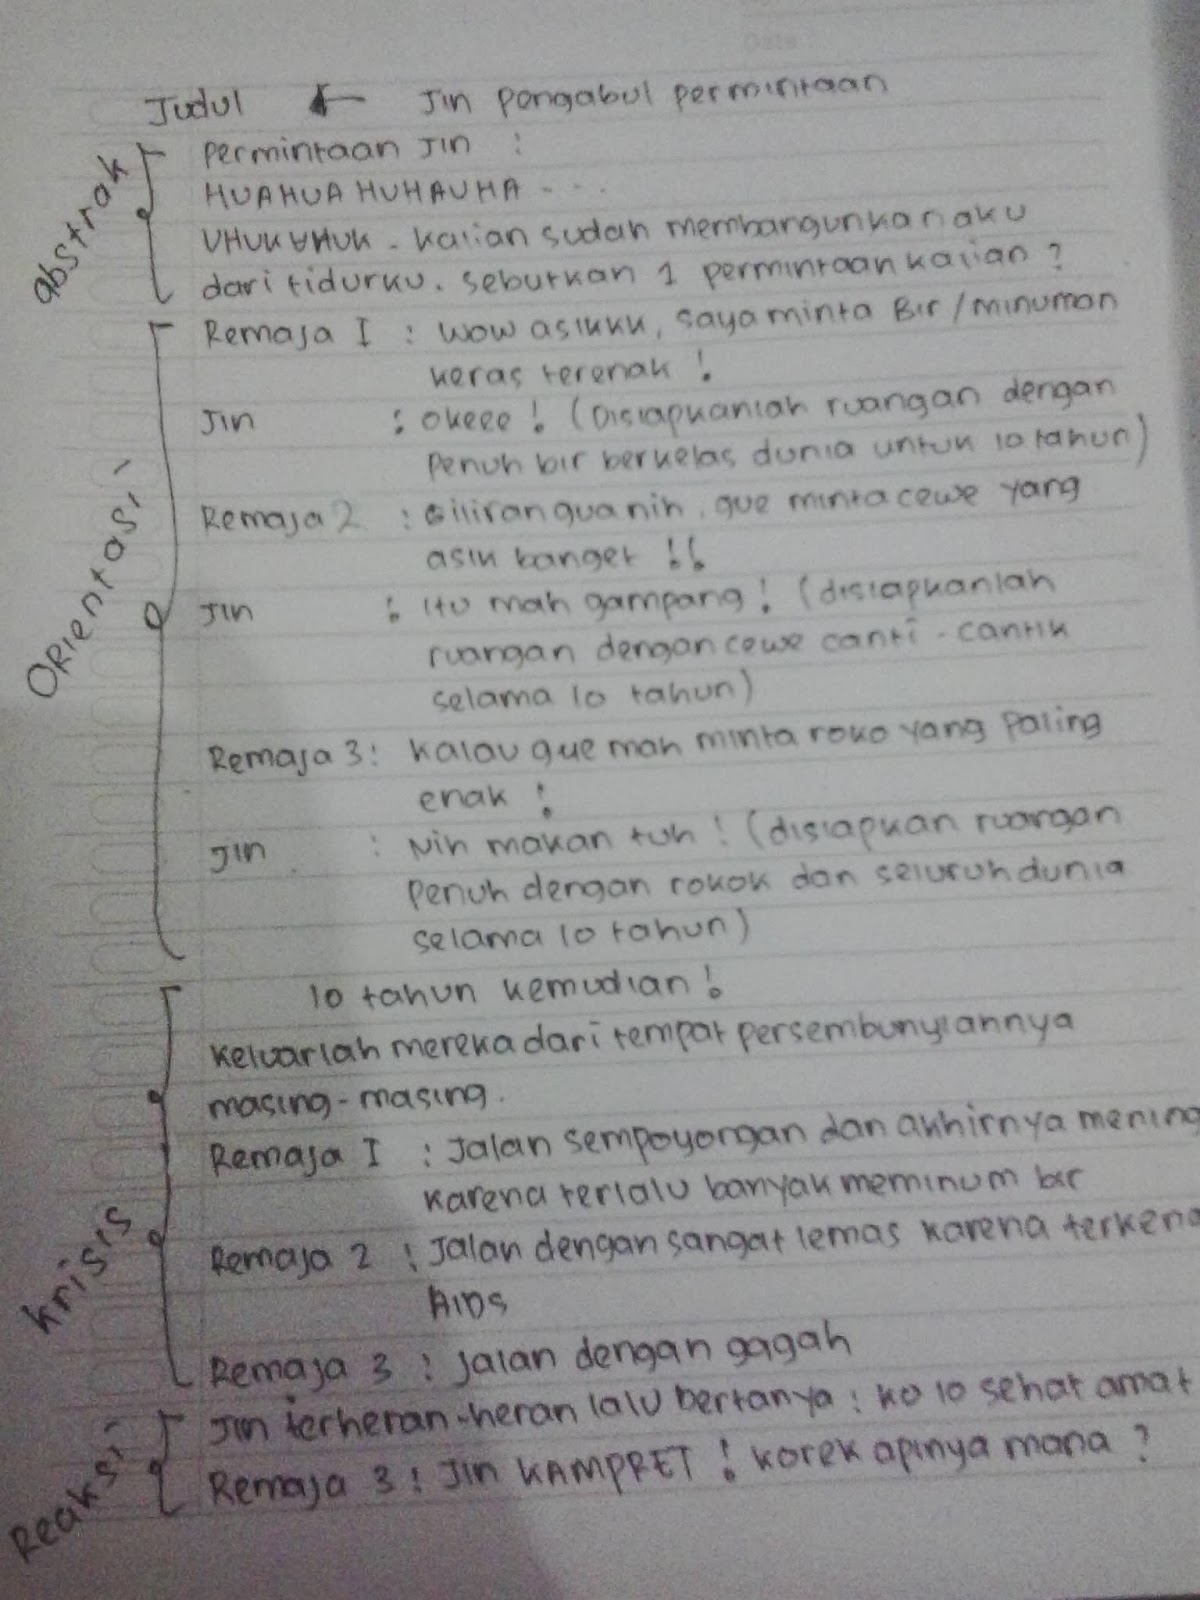 Date
Judul ← Jin pengabul permintaan
abstrak
Permintaan Jin :
HUAHUA HUHAUHA - - -
UHUK UHUK - kalian sudah membangunkan aku
dari tidurku. seburkan 1 permintaan kalian ?
Orientasi
Remaja I : Wow asikkk, saya minta Bir / minuman
keras terenak !
Jin : okeee ! (Disiapkanlah ruangan dengan
penuh bir berkelas dunia untuk 10 tahun)
Remaja 2 : Giliran gua nih, gue minta cewe yang
asik banget !!
Jin : itu mah gampang ! (disiapkanlah
ruangan dengan cewe canti - cantik
selama 10 tahun)
Remaja 3 : kalau gue mah minta roko yang paling
enak !
Jin : Nih makan tuh ! (disiapkan ruangan
penuh dengan rokok dan seluruh dunia
selama 10 tahun)
krisis
10 tahun kemudian !
keluarlah mereka dari tempat persembunyiannya
masing - masing.
Remaja I : Jalan sempoyongan dan akhirnya mening
karena terlalu banyak meminum bir
Remaja 2 : Jalan dengan sangat lemas karena terkena
AIDS
Remaja 3 : Jalan dengan gagah
Reaksi
Jin terheran-heran lalu bertanya : ko lo sehat amat
Remaja 3 : Jin KAMPRET ! korek apinya mana ?